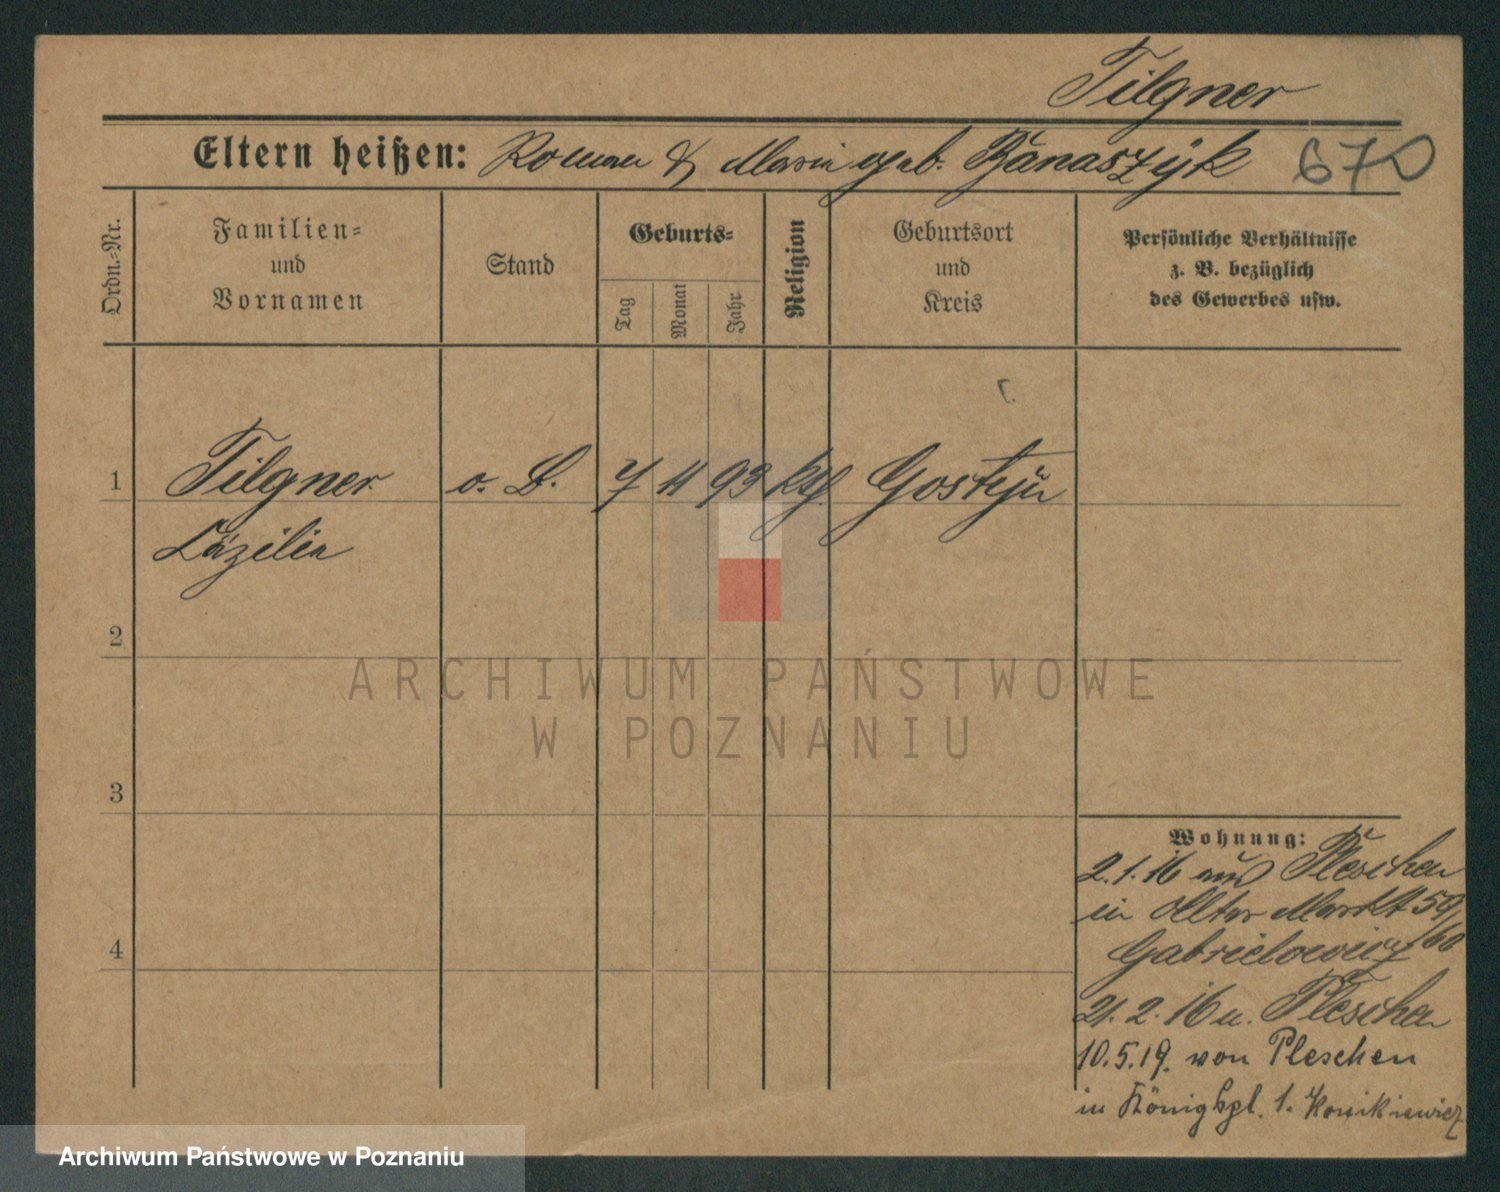 Tilgner
Eltern heißen: Roman & Maria geb. Banaszÿk 670
Ordn.-Nr.
Familien-
und
Vornamen
Stand
Geburts-
Tag
Monat
Jahr
Religion
Geburtsort
und
Kreis
Persönliche Verhältnisse
z. B. bezüglich
des Gewerbes usw.
1 Tilgner o. B. 7 11 93 kth. Gostÿn
Cäzilia
2
3
4
Wohnung:
2.1.16 aus Pleschen
in Alter Markt 59/60
Gabrielowicz
21.2.16 n. Pleschen
10.5.19. von Pleschen
in Königspl. 1.
ARCHIWUM PAŃSTWOWE
W POZNANIU
Archiwum Państwowe w Poznaniu